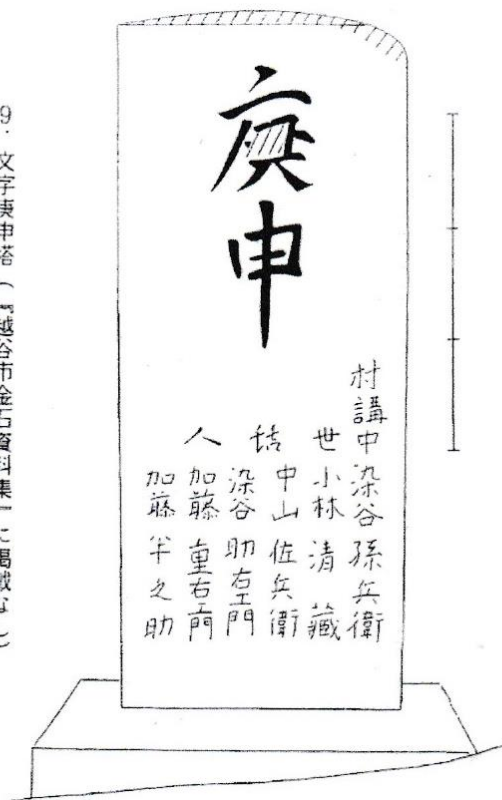 庚申
村講中 染谷孫兵衛
世話人
小林清藏
中山佐兵衛
染谷助右エ門
加藤重右エ門
加藤半之助
9．文字庚申塔（『越谷市金石資料集』に掲載なし）